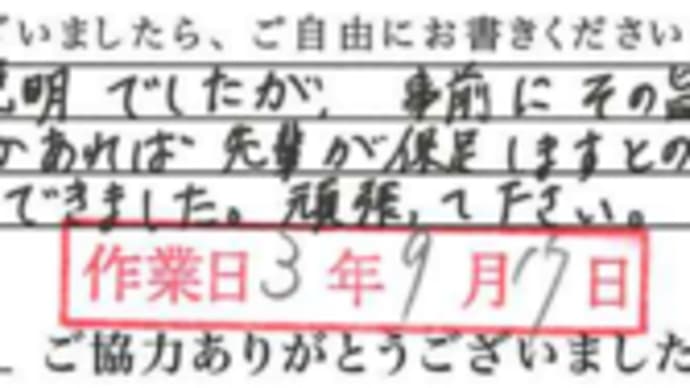 ざいましたら、ご自由にお書きください
説明でしたが、事前にその旨
があれば先輩が保足しますとの
できました。頑張って下さい。
作業日3年9月17日
ご協力ありがとうございました